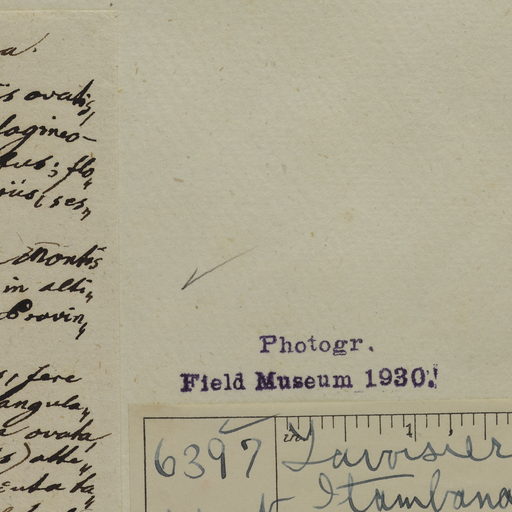 a.
is ovatis,
lagineo-
tus; flo„
riis, ses„
Montis
in alti„
Provin„
s, fere
angula„
a ovata,
s) atte„
Photogr.
Field Museum 1930!
6397
1
Lavoisier
Itambana